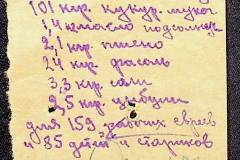 101 кгр. кукур. муки
1,4 кгр масло подсолнеч
2,1 кгр. пшено
24 кгр. фасоль
3,3 кгр. соли
2,5 кгр. цибули
для 159 рабочих евреев
и 85 детей и стариков